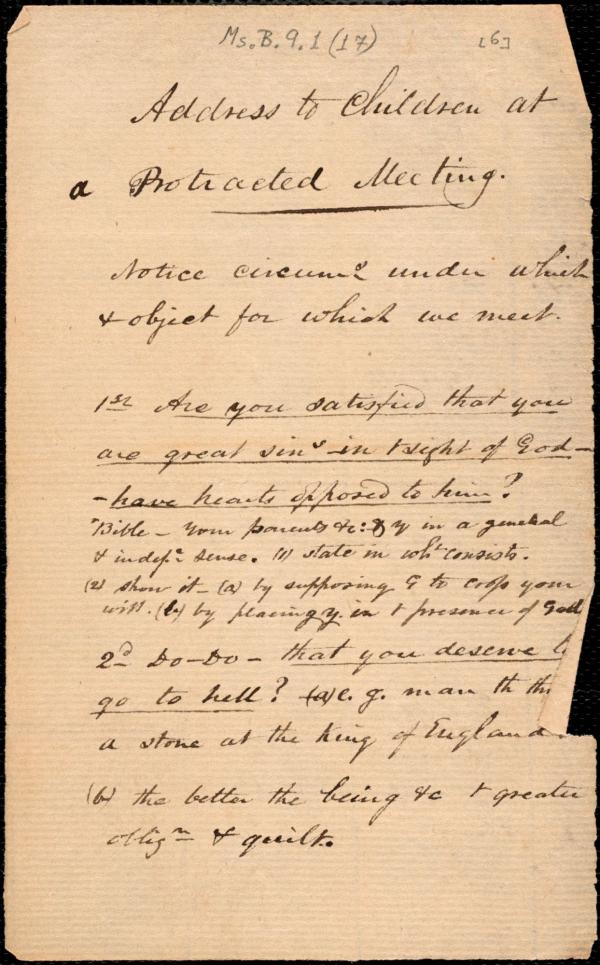 Ms. B. 9. 1 (17) [6]
Address to Children at
a Protracted Meeting.
Notice circums under which
& object for which we meet.
1st Are you satisfied that you
are great sins in t sight of God -
- have hearts opposed to him?
Bible - Your parents &c: & y in a general
& indef. sense. (1) state in wht consists.
(2) show it - (a) by supposing G to cross your
will. (b) by placing y. in t presence of God
2d Do - Do - that you deserve to
go to hell? (a) e. g. man th th
a stone at the King of England.
(b) the better the being &c t greater
oblign & guilt.